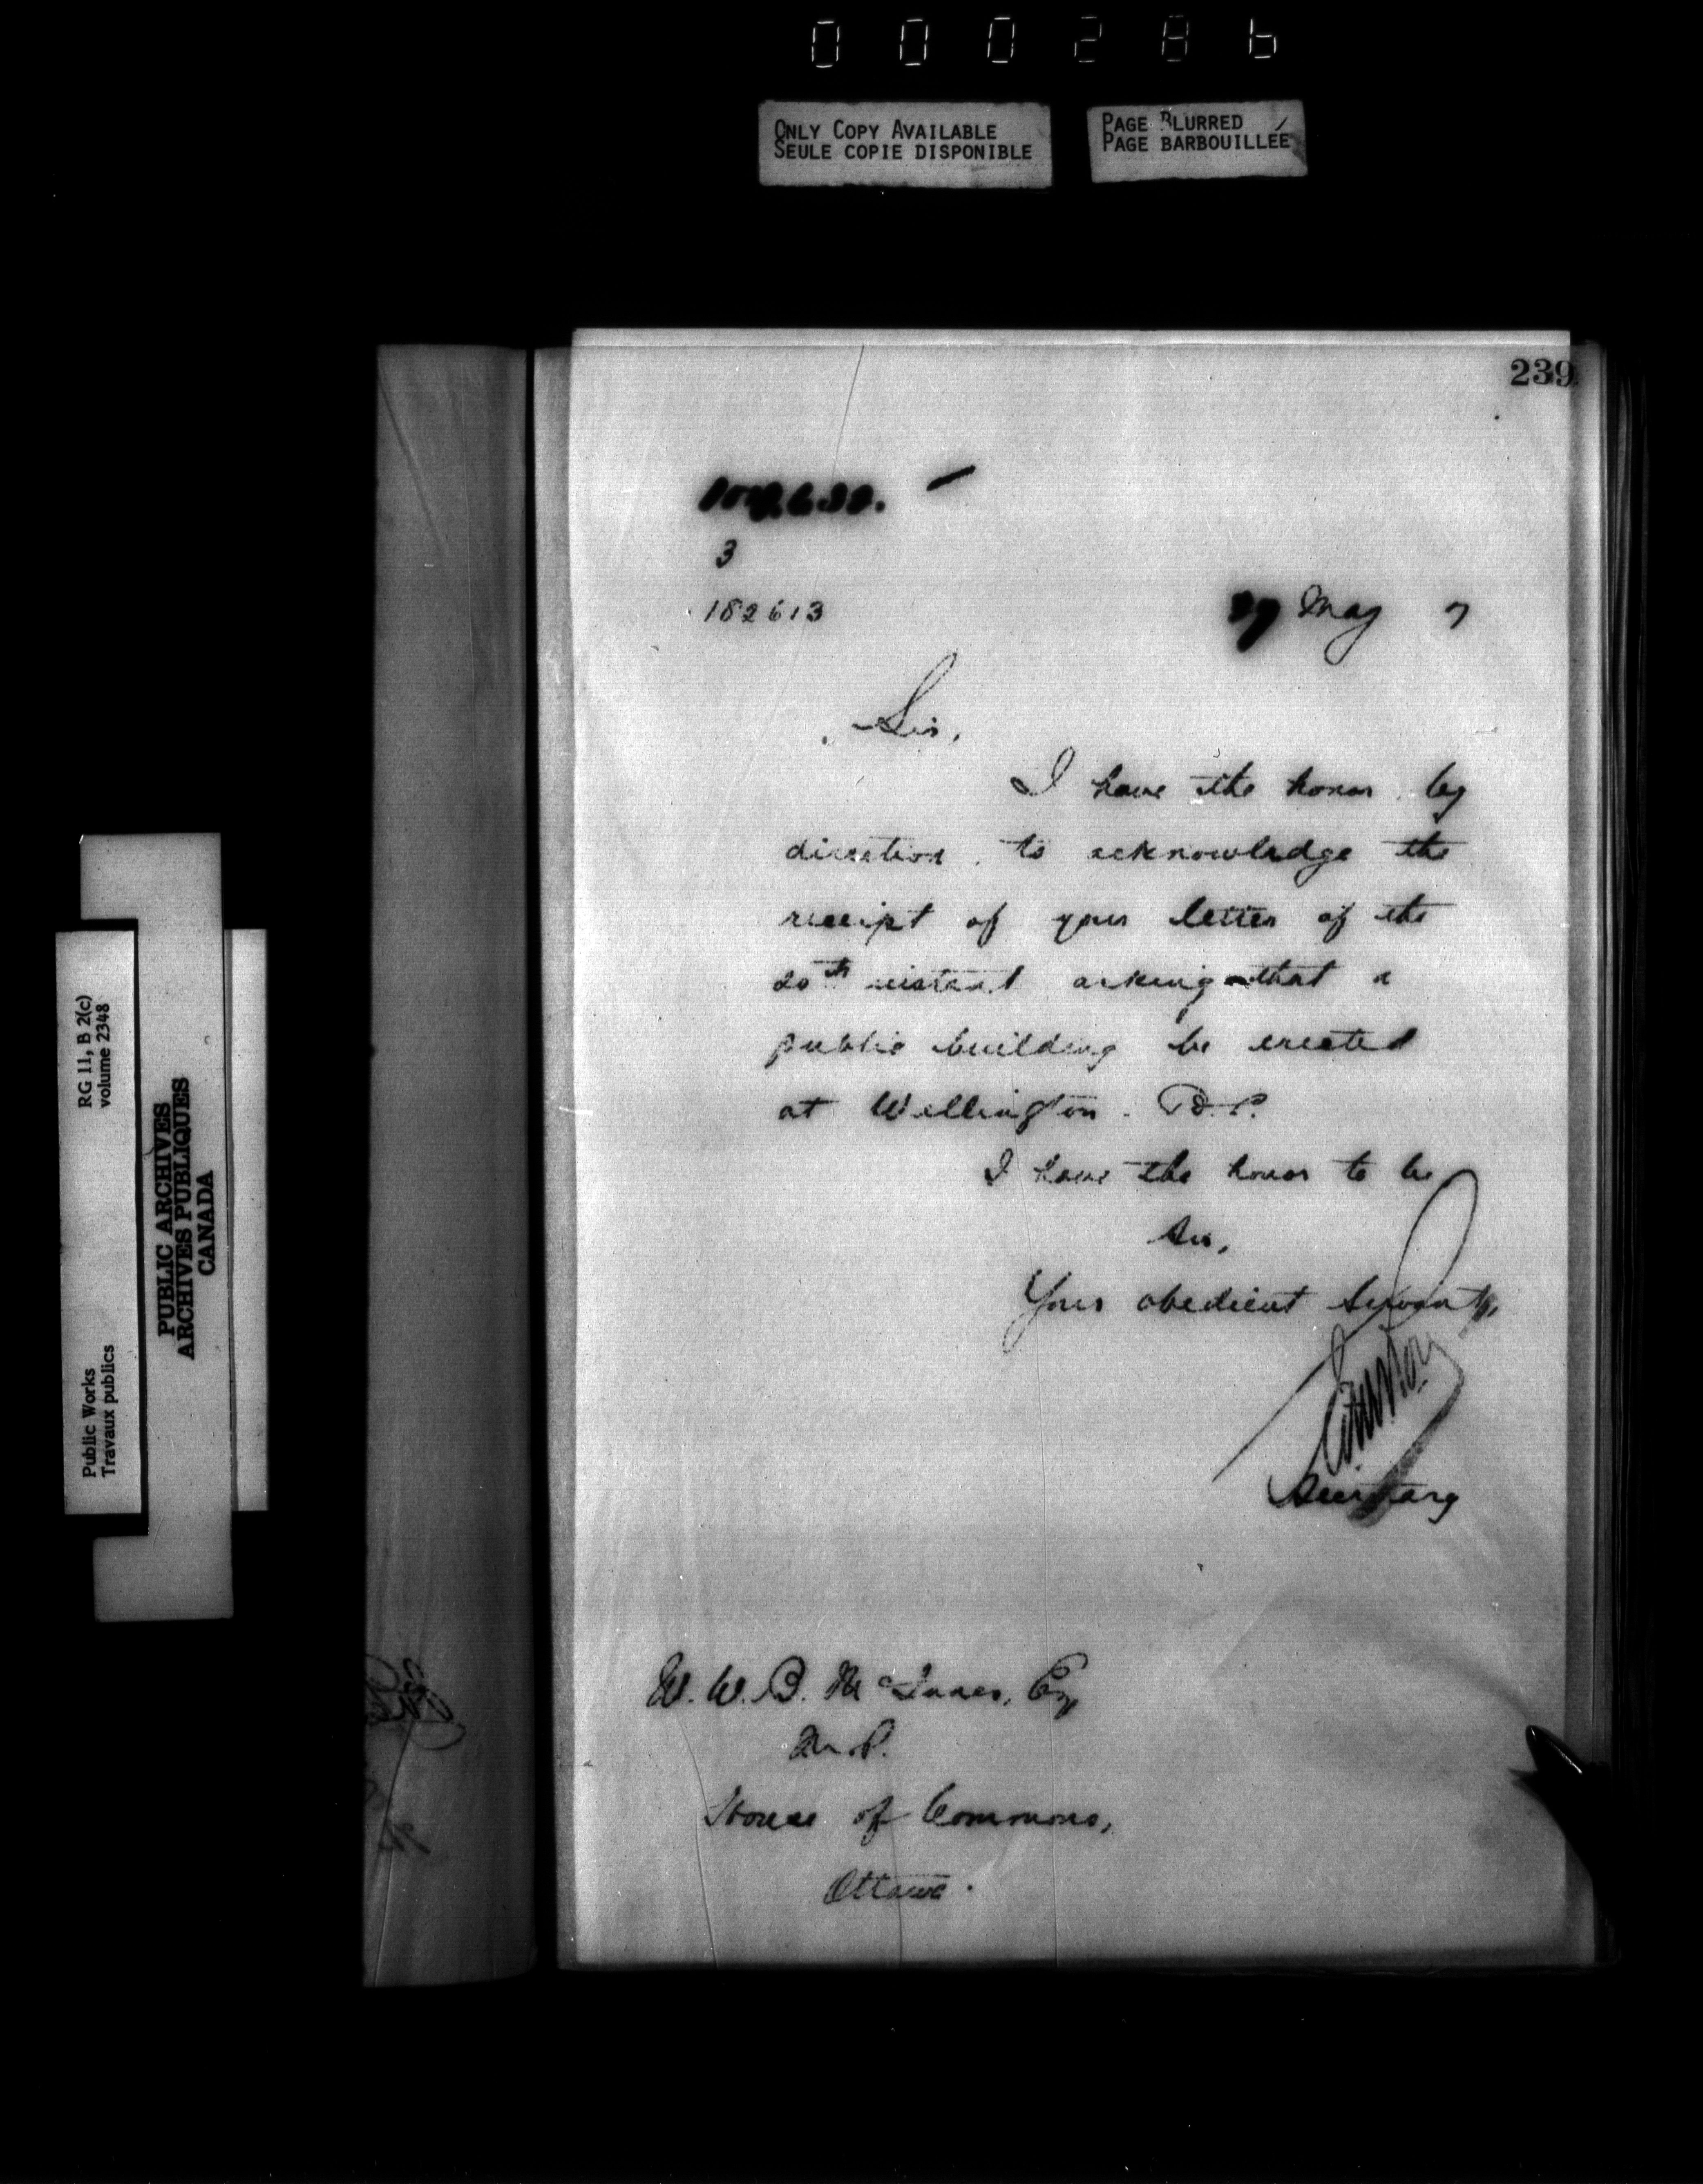 000286
ONLY COPY AVAILABLE
SEULE COPIE DISPONIBLE
PAGE BLURRED
PAGE BARBOUILLÉE
239
3
182613
27 May 7
Sir,
I have the honor, by
direction, to acknowledge the
receipt of your letter of the
20th instant asking that a
public building be erected
at Wellington. B.C.
I have the honor to be
Sir,
Your obedient Servant,
Secretary
W. W. B. McInnes, Esq
M.P.
House of Commons,
Ottawa.
RG 11, B 2(c)
volume 2348
Public Works
Travaux publics
PUBLIC ARCHIVES
ARCHIVES PUBLIQUES
CANADA